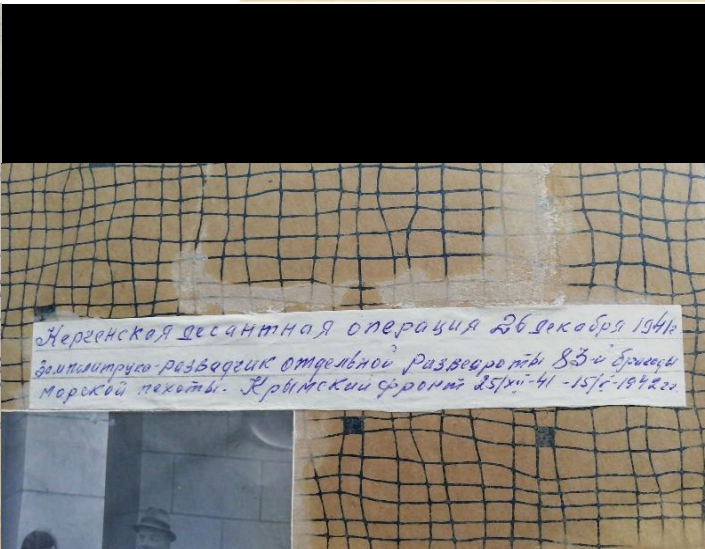 Керченская десантная операция 26 декабря 1941г
Замполитрука-разведчик отдельной разведроты 83-й бригады
морской пехоты. Крымский фронт 25/XII-41 -15/V-1942гг